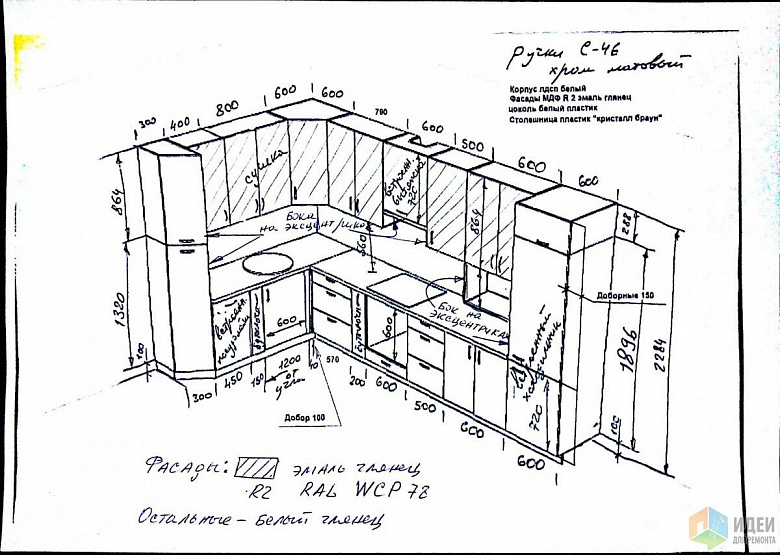 Ручки С-46
хром матовый
Корпус лдсп белый
Фасады МДФ R 2 эмаль глянец
цоколь белый пластик
Столешница пластик "кристалл браун"
300
400
800
600
600
790
600
500
600
600
864
сушка
встроен.
вытяжка
720
864
288
Бока
на эксцент/шков
560
1320
100
встроен.
бутылочн
600
600
бутылочн
Бок на
эксцентриках
встроенный
холодильник
720
Доборные 150
1896
2284
100
300
450
150
1200
от
угла
10
570
200
600
500
600
600
Добор 100
Фасады: эмаль глянец
R2 RAL WCP 78
Остальные - белый глянец
ИДЕИ
ДЛЯ РЕМОНТА